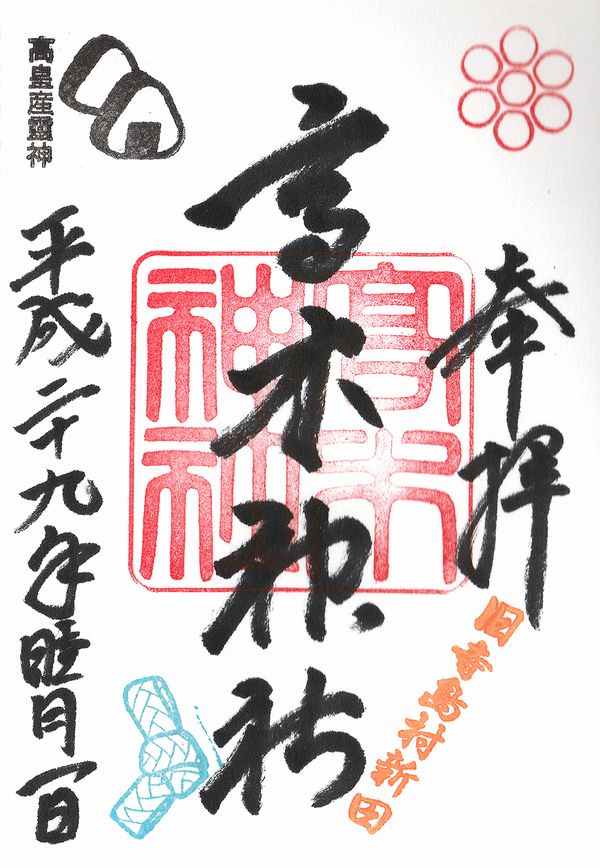 奉拝
旧寺島村新田
高木神社
高木
神社
高皇産靈神
平成二十九年睦月一日